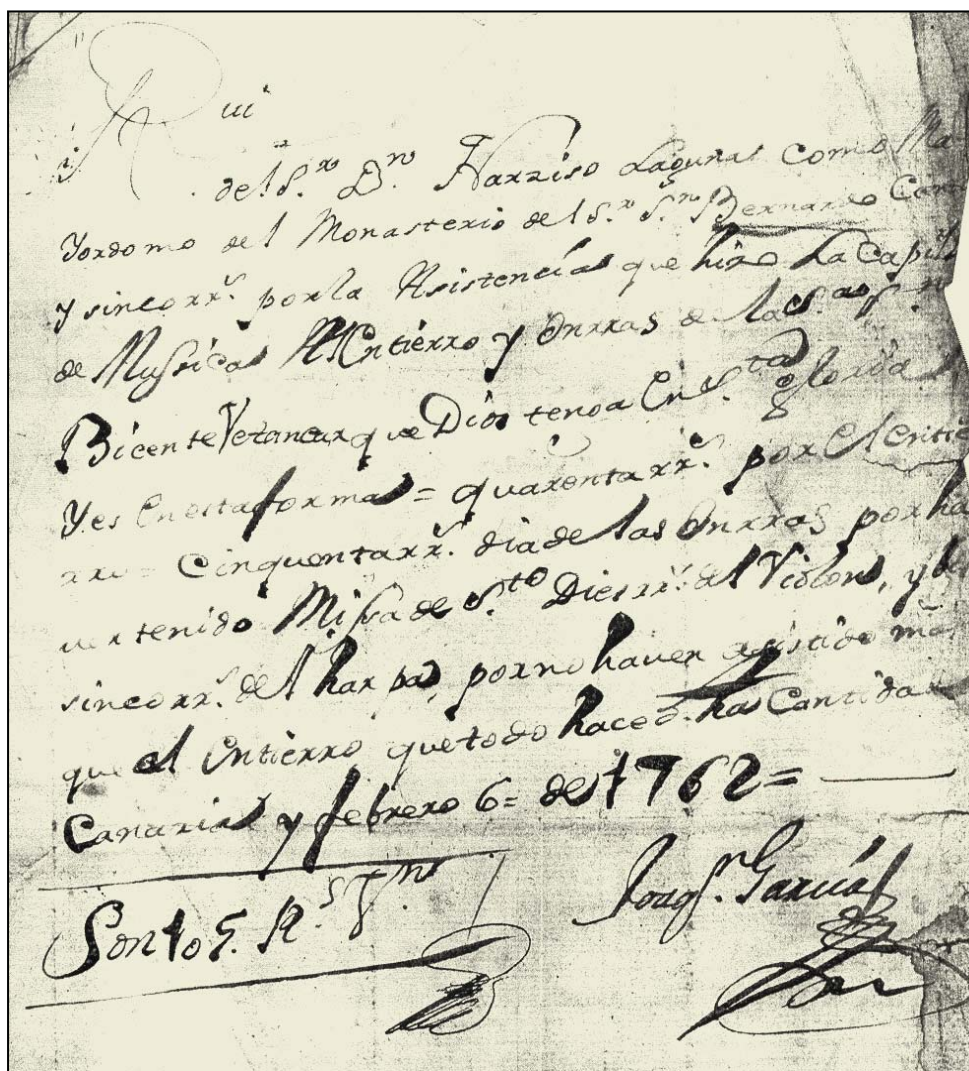 Rui
del S.r D.n Narziso Lagunas Como Ma
Yordomo del Monasterio del S.r S.n Bernardo
y sincorr.s por la Asistencia que hizo La Capill
de Mussica Al Entierro y Onrras de la S.a
Bicente Vetancur que Dios tenga En S.ta gloria
Y es En esta forma = quarenta rr.s por el Entie
rro = Cinquenta rr.s dia de las Onrras por ha
uer tenido Missa de S.to Dies rr.s del Violon, y
sinco rr.s del harpa, por no hauer asistido mas
que al Entierro que todo hace d.ha Cantidad
Canaria y febrero 6 = de 1762 =
Son to 5. R.s V.n
Joaq.n Garcia